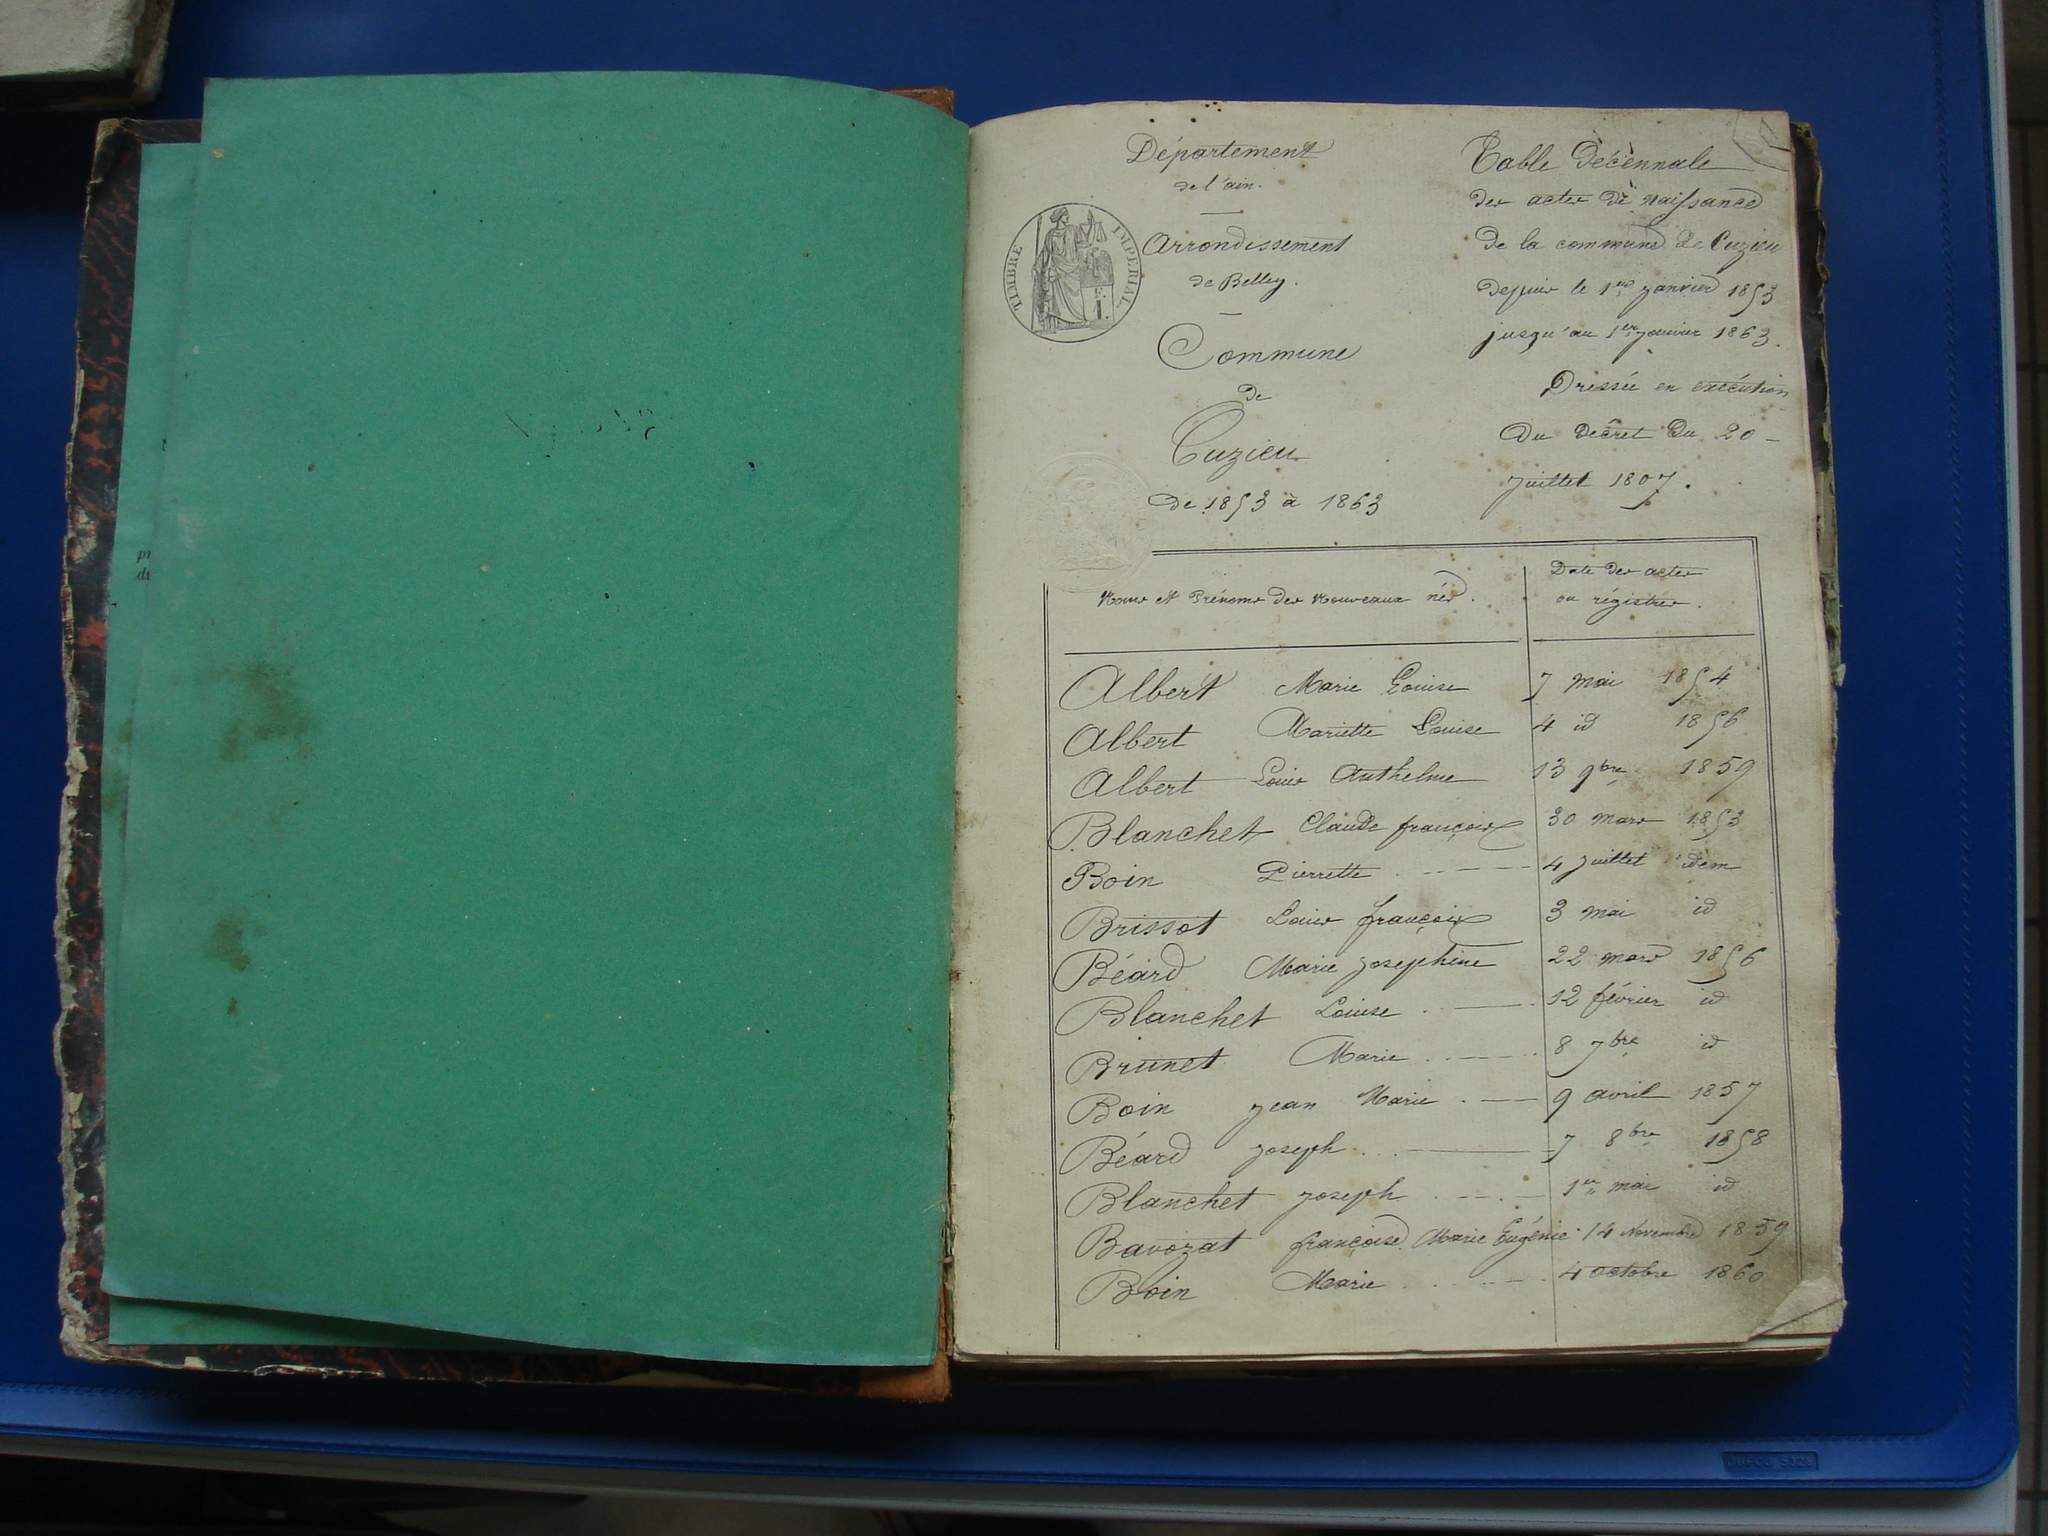 Département
de l'ain.
Arrondissement
de Belley.
Commune
de
Cuzieu
de 1853 à 1863
TIMBRE IMPERIAL
Table décennale
des actes de naissance
de la commune de Cuzieu
depuis le 1er janvier 1853
jusqu'au 1er janvier 1863.
Dressée en exécution
du décret du 20
juillet 1807.
Noms et Prénoms des Nouveaux nés.
Date des actes
ou régistres.
Albert Marie Louise 7 mai 1854
Albert Mariette Louise 4 id 1856
Albert Louis Anthelme 13 9bre 1859
Blanchet Claude françois 30 mars 1853
Boin Pierrette 4 juillet idem
Brissot Louis françois 3 mai id
Béard Marie josephine 22 mars 1856
Blanchet Louise 12 février id
Brunet Marie 8 7bre id
Boin jean Marie 9 avril 1857
Béard joseph 7 8bre 1858
Blanchet joseph 1er mai id
Bavozat françoise Marie Eugénie 14 Novembre 1859
Boin Marie 4 octobre 1860
pr
du